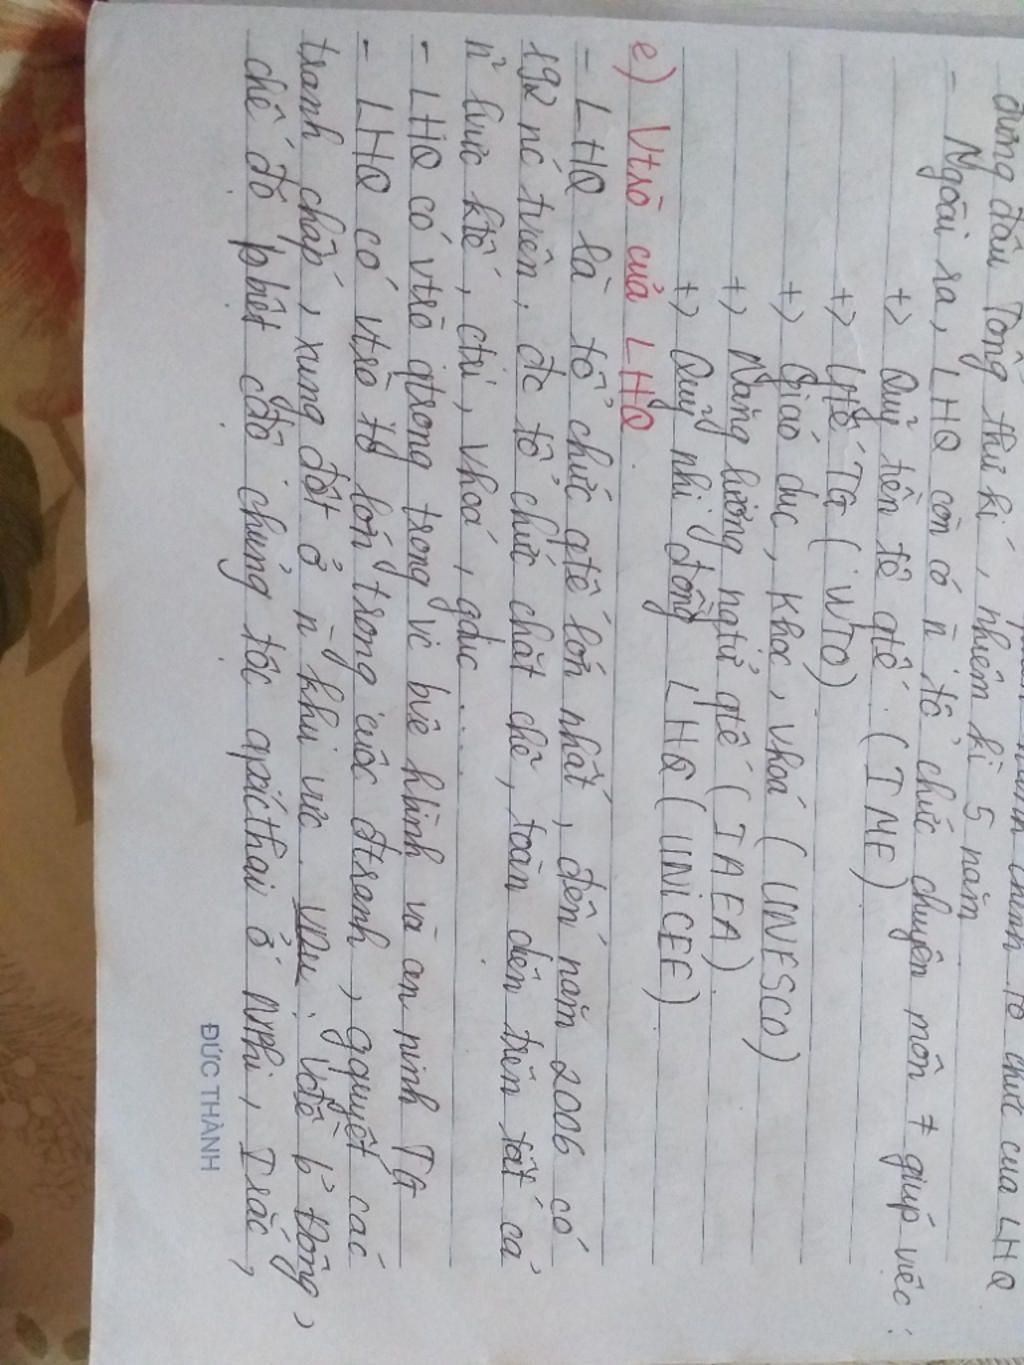 hành chính tổ chức của LHQ
đứng đầu Tổng thư kí, nhiệm kì 5 năm
- Ngoài ra, LHQ còn có n` tổ chức chuyên môn ≠ giúp việc:
+> Quỹ tiền tệ qtế (IMF)
+> tế TG (WTO)
+> Giáo dục, khọc, vhoá (UNESCO)
+> Năng lượng ngtử qtế (IAEA).
+> Quỹ nhi đồng LHQ (UNICEF).
e) Vtrò của LHQ.
- LHQ là tổ chức qtế lớn nhất, đến năm 2006 có
192 nc tviên, đc tổ chức chặt chẽ, toàn diện trên tất cả
lvực ktế, ctrị, vhoá, gdục....
- LHQ có vtrò qtrọng trong vc bvệ hbình và an ninh TG
- LHQ có vtrò to lớn trong cuộc đtranh, gquyết các
tranh chấp, xung đột ở n` khu vực. VDụ: Vđề b' Đông,
chế độ pbiệt cđộ chủng tộc apácthai ở NPhi, Irắc,
ĐỨC THÀNH